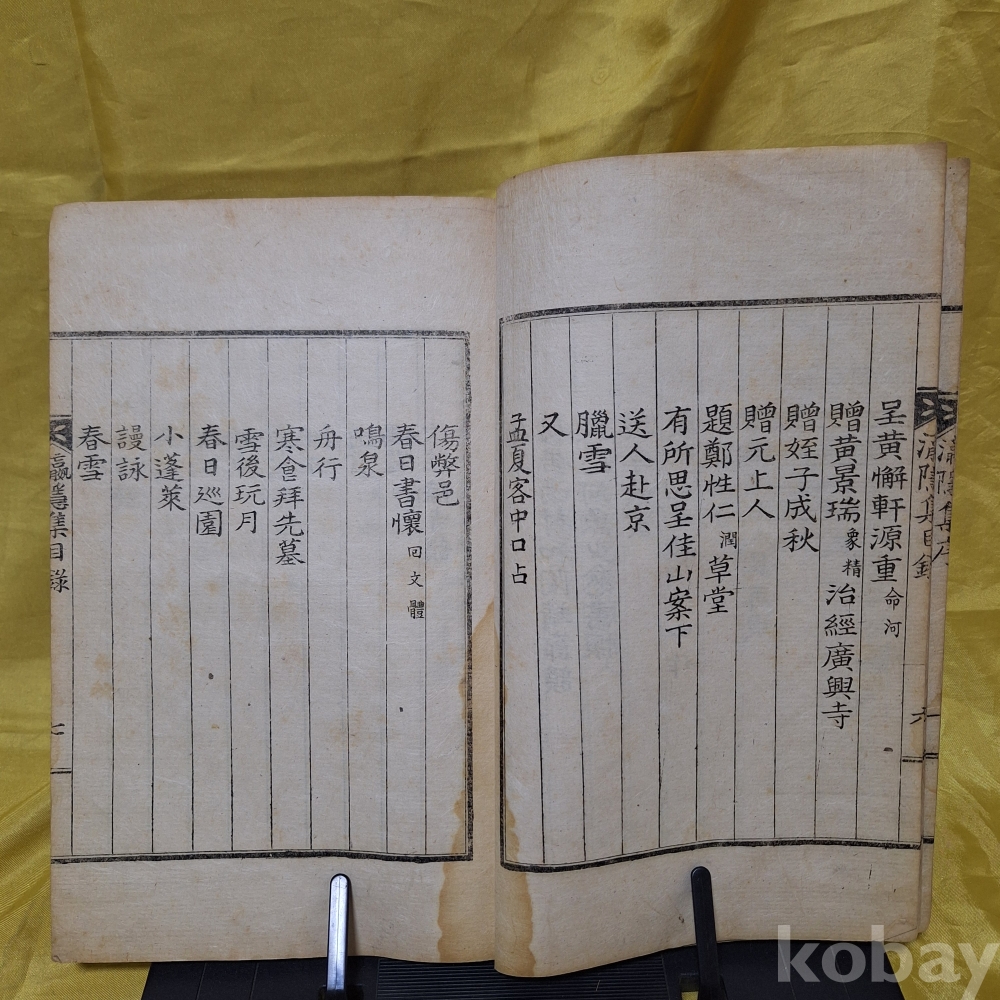 呈黃懈軒源重命河
贈黃景瑞象精治經廣興寺
贈姪子成秋
贈元上人
題鄭性仁潤草堂
有所思呈佳山案下
送人赴京
臘雪
又
孟夏客中口占
傷弊邑
春日書懷回文體
鳴泉
舟行
寒食拜先墓
雪後玩月
春日巡園
小蓬萊
謾詠
春雪
集目錄
kobay